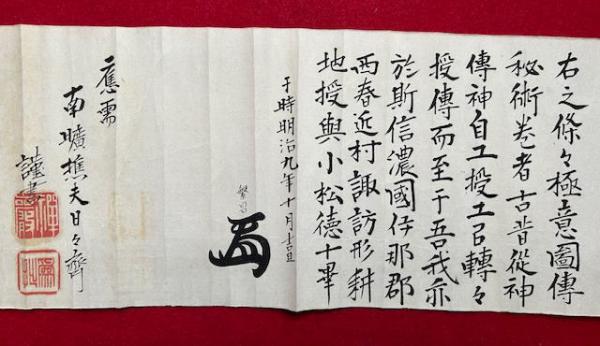 右之條々極意圖傳
秘術巻者古昔從神
傳神自工授工已轉々
授傳而至于吾我亦
於斯信濃國伊那郡
西春近村諏訪形耕
地授與小松德十畢
于時明治九年十月吉旦
應需
南曠樵夫日々齊
謹書